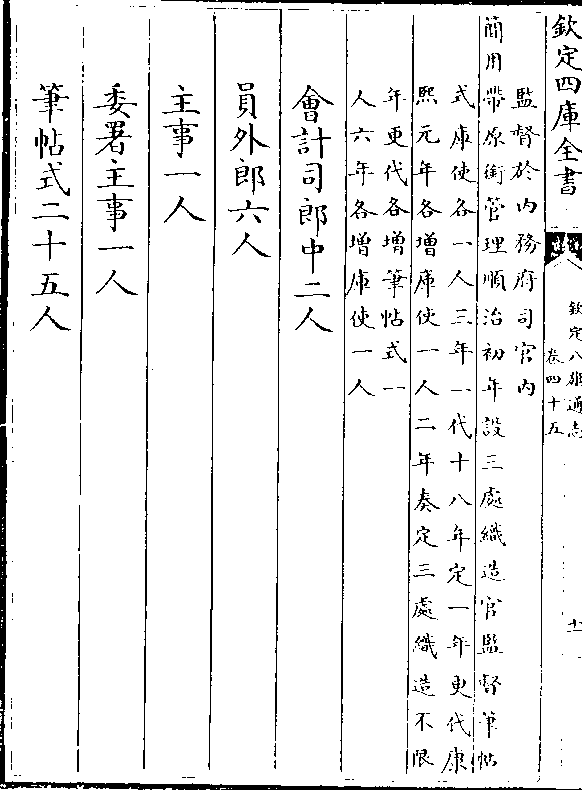 欽定四庫全書
欽定八旗通志
卷四十五
十一
監督於内務府司官内
簡用帶原銜管理順治初年設三處織造官監督筆帖
式庫使各一人三年一代十八年定一年更代康
熙元年各增庫使一人二年奏定三處織造不限
年更代各增筆帖式一
人六年各增庫使一人
會計司郎中二人
員外郎六人
主事一人
委署主事一人
筆帖式二十五人